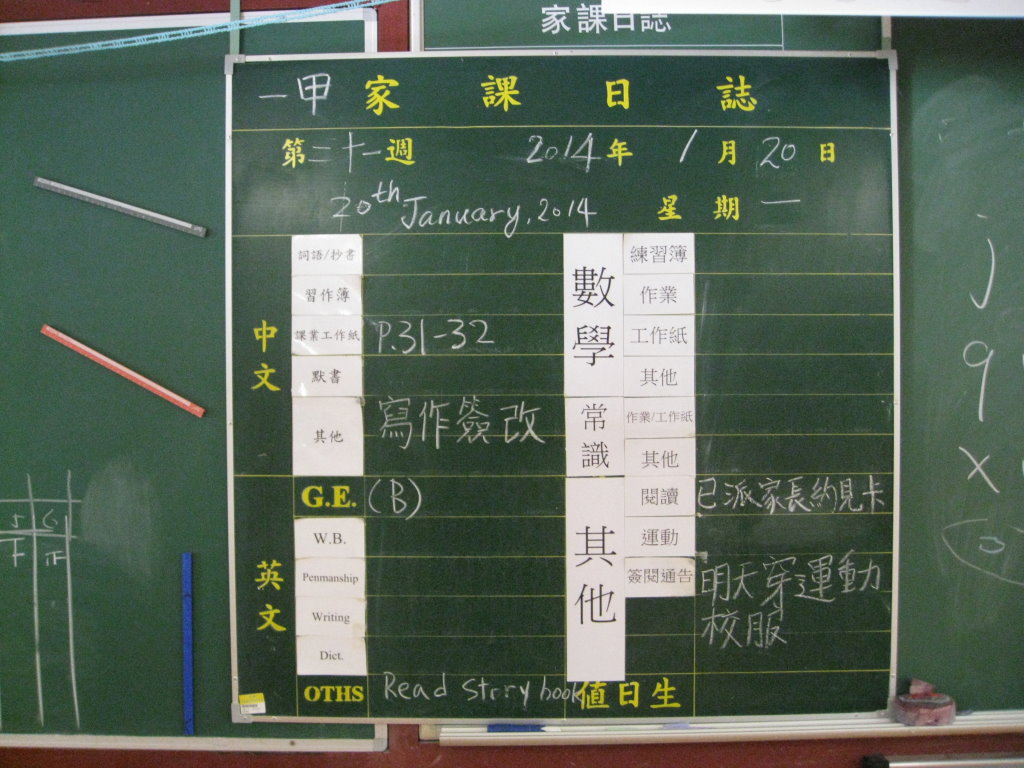 家課日誌
一甲 家課日誌
第二十一週 2014年 1月20日
20th January, 2014 星期一
中文
詞語/抄書
習作簿
課業工作紙 P.31-32
默書
其他 寫作簽改
英文
G.E. (B)
W.B.
Penmanship
Writing
Dict.
OTHS Read story book
數學
練習簿
作業
工作紙
其他
常識
作業/工作紙
其他
其他
閱讀 已派家長約見卡
運動
簽閱通告 明天穿運動
校服
值日生
j
9
x